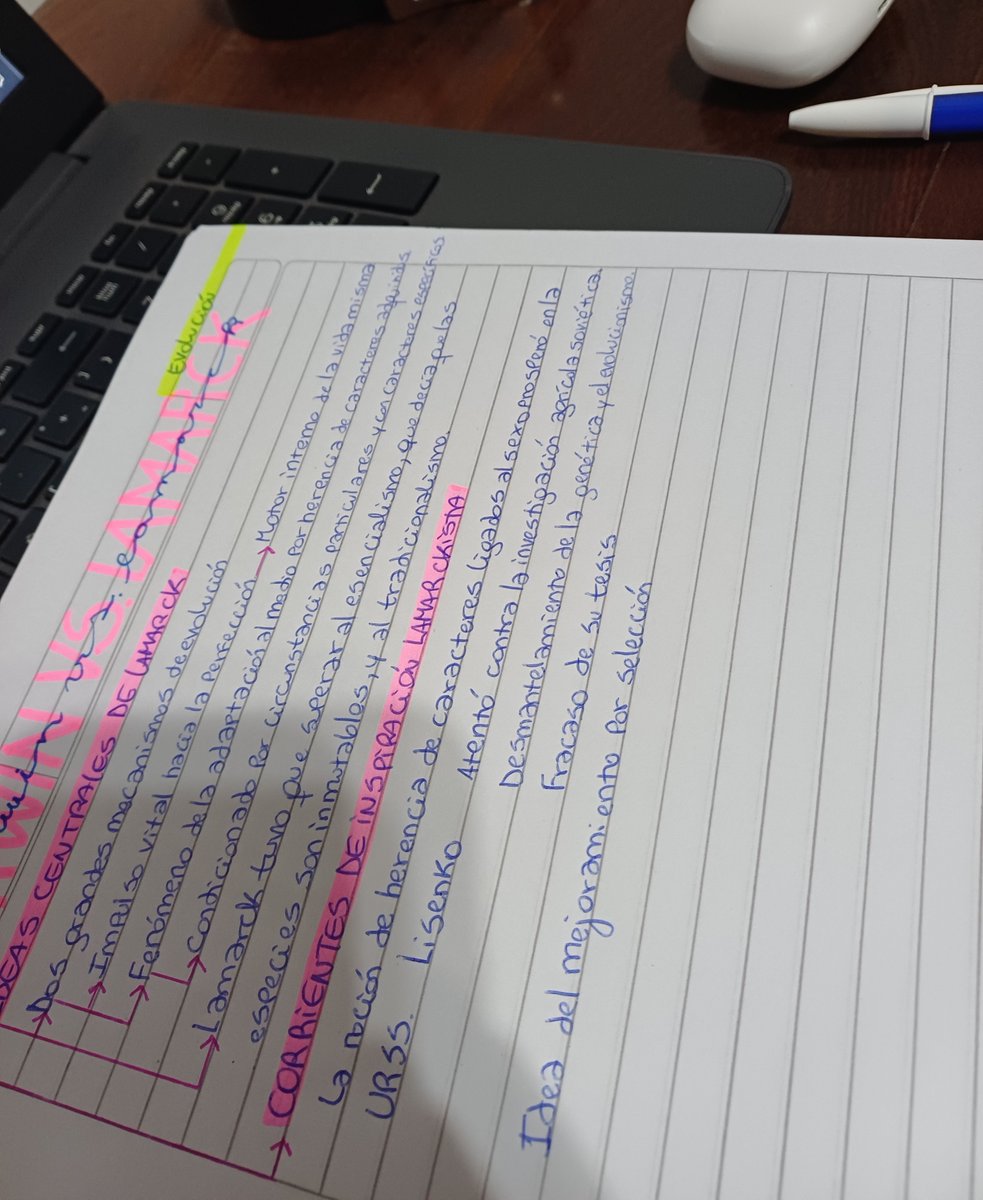 Evolución
WIN VS. LAMARCK
win vs. Lamarck
IDEAS CENTRALES DE LAMARCK
Dos grandes macanismos de evolución
Impulso vital hacia la perfección
Fenómeno de la adaptación → Motor interno de la vida misma
Condicionado al medio por herencia de caracteres adquiridos
Lamarck tuvo que superar al esencialismo, que decía que las
especies son inmutables, y al tradicionalismo.
CORRIENTES DE INSPIRACIÓN LAMARCKISTA
La noción de herencia de caracteres ligados al sexo prosperó en la
URSS. Lisenko Atentó contra la investigación agrícola soviética.
Desmantelamiento de la genética y el evolucionismo.
Fracaso de su tesis
Idea del mejoramiento por selección